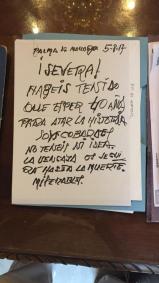 PALMA DE MALLORCA 5-8-17
¡SEVERA!
HABEIS TENIDO
QUE ESPERAR 40 AÑOS
PARA ATAR LA HISTORIA
SOIS COBARDES
NO TENEIS NI IDEA.
LA VENGANZA OS SEGUI-
RA HASTA LA MUERTE.
MISERABLES.